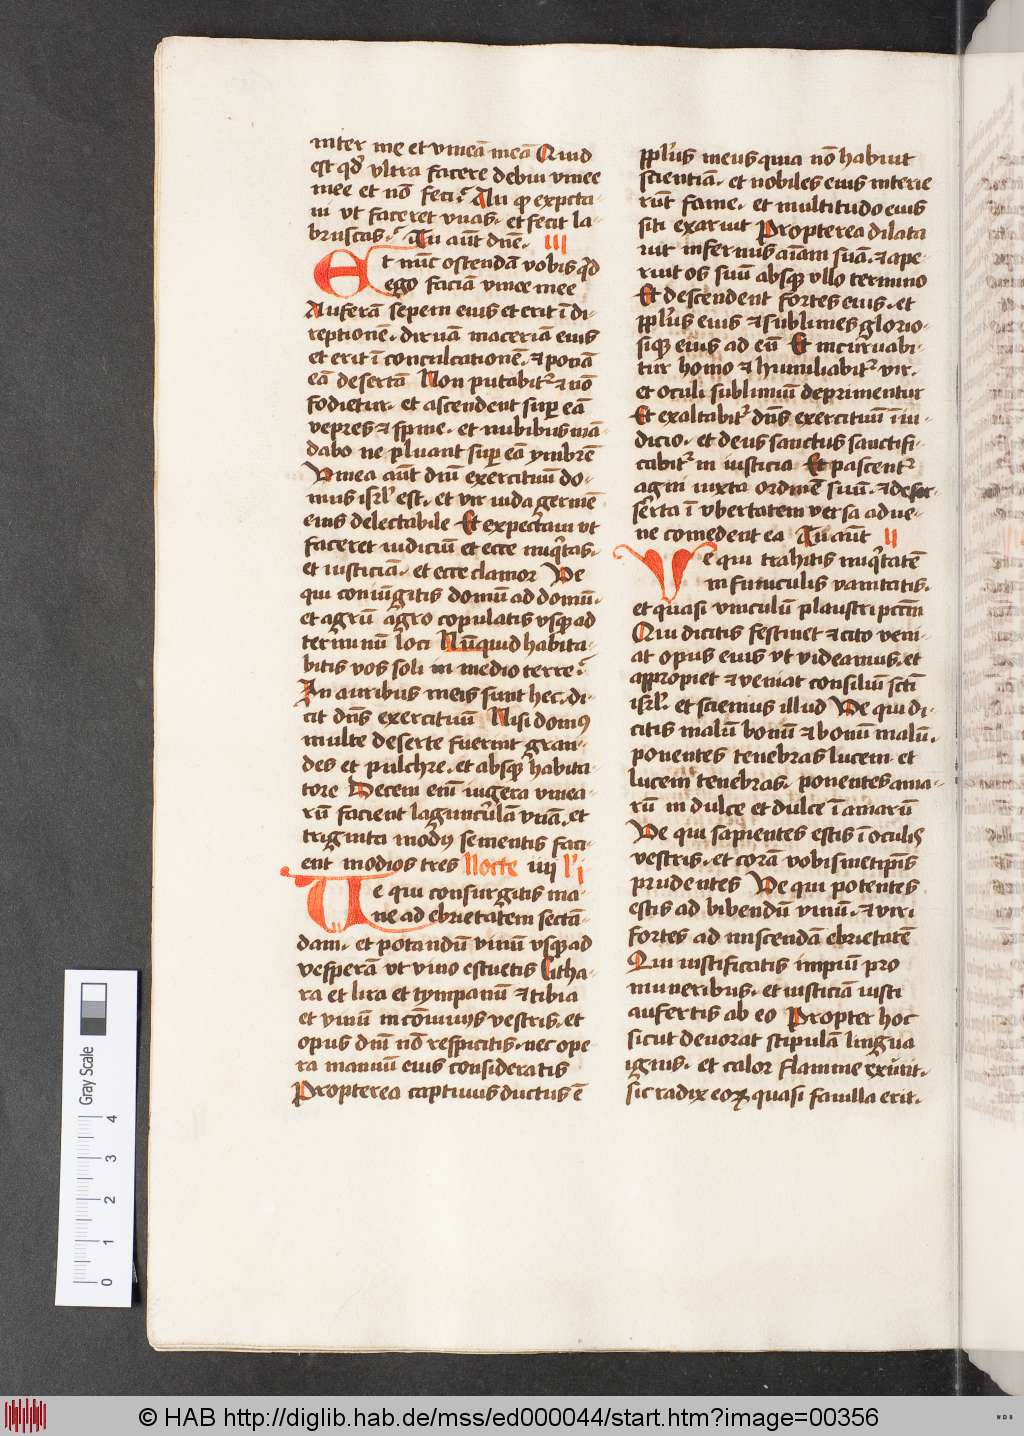 inter me et vineā meā Quid
est qd' vltra facere debui vinee
mee et nō feci? An qp expcta
ui vt faceret vuas· et fecit la-
bruscas? Tu aūt dn̄e· III
Et nūc ostendā vobis qd
ego faciā vinee mee
Auferā sepem eius et erit ī di-
reptionē· diruā maceriam eius
et erit ī conculcationē· et ponā
eā desertā Non putabit' et nō
fodietur· et ascendent sup eā
vepres et spine· et nubibus mā-
dabo ne pluant sup eā ymbrē
Vinea aūt dn̄i exercituū do-
mus isrl' est· et vir iuda germē
eius delectabile Et expectaui vt
faceret iudiciū et ecce iniq'tas·
et iusticiā· et ecce clamor Ve
qui coniūgitis domū ad domū·
et agrū agro copulatis vsq ad
terminū loci Nūquid habita-
bitis vos soli in medio terre?
In auribus meis sunt hec· di-
cit dn̄s exercituū Nisi dom9
multe deserte fuerint gran-
des et pulchre· et absq habita-
tore Decem em̄ iugera vinea-
rū facient laguncl'ā vnā· et
triginta mod9 sementis faci-
ent modios tres Nocte iiij l'i
Ve qui consurgitis ma-
ne ad ebrietatem sectā-
dam· et potandū vinū vsq ad
vesperā vt vino estuetis Citha-
ra et lira et tympanū et tibia
et vinū in cōuiuijs vestris· et
opus dn̄i nō respicitis· nec ope
ra manuū eius consideratis
Propterea captiuus ductus ē
ppl'us meus quia nō habuit
scientiā· et nobiles eius interie
rūt fame· et multitudo eius
siti exaruit Propterea dilata
uit infernus aīam suā· et ape-
ruit os suū absq vllo termino
Et descendent fortes eius· et
ppl'us eius et sublimes glorio-
siq eius ad eū Et incuruabi-
tur homo et humiliabit' vir·
et oculi sublimiū deprimentur
Et exaltabit' dn̄s exercituū ī iu-
dicio· et deus sanctus sanctifi-
cabit' in iusticia Et pascent'
agni iuxta ordinē suū· et deser-
serta ī vbertatem versa adue-
ne comedent ea Tu aūt II
Ve qui trahitis iniq'tatē
in funiculis vanitatis·
et quasi vinculū plaustri pctm̄
Qui dicitis festinet et cito veni-
at opus eius vt videamus· et
appropiet et veniat consiliū scti
isrl' et sciemus illud Ve qui di-
citis malū bonū et bonū malū·
ponentes tenebras lucem et
lucem tenebras· ponentes ama-
rū in dulce et dulce ī amarū
Ve qui sapientes estis ī oculis
vestris· et corā vobismetip̄is
prudentes Ve qui potentes
estis ad bibendū vinū· et viri
fortes ad miscendā ebrietatē
Qui iustificatis impiū pro
muneribus· et iusticiā iusti
aufertis ab eo Propter hoc
sicut deuorat stipulā lingua
ignis· et calor flamme exurit·
sic radix eorꝝ quasi fauilla erit·
Gray Scale
0 1 2 3 4
© HAB http://diglib.hab.de/mss/ed000044/start.htm?image=00356